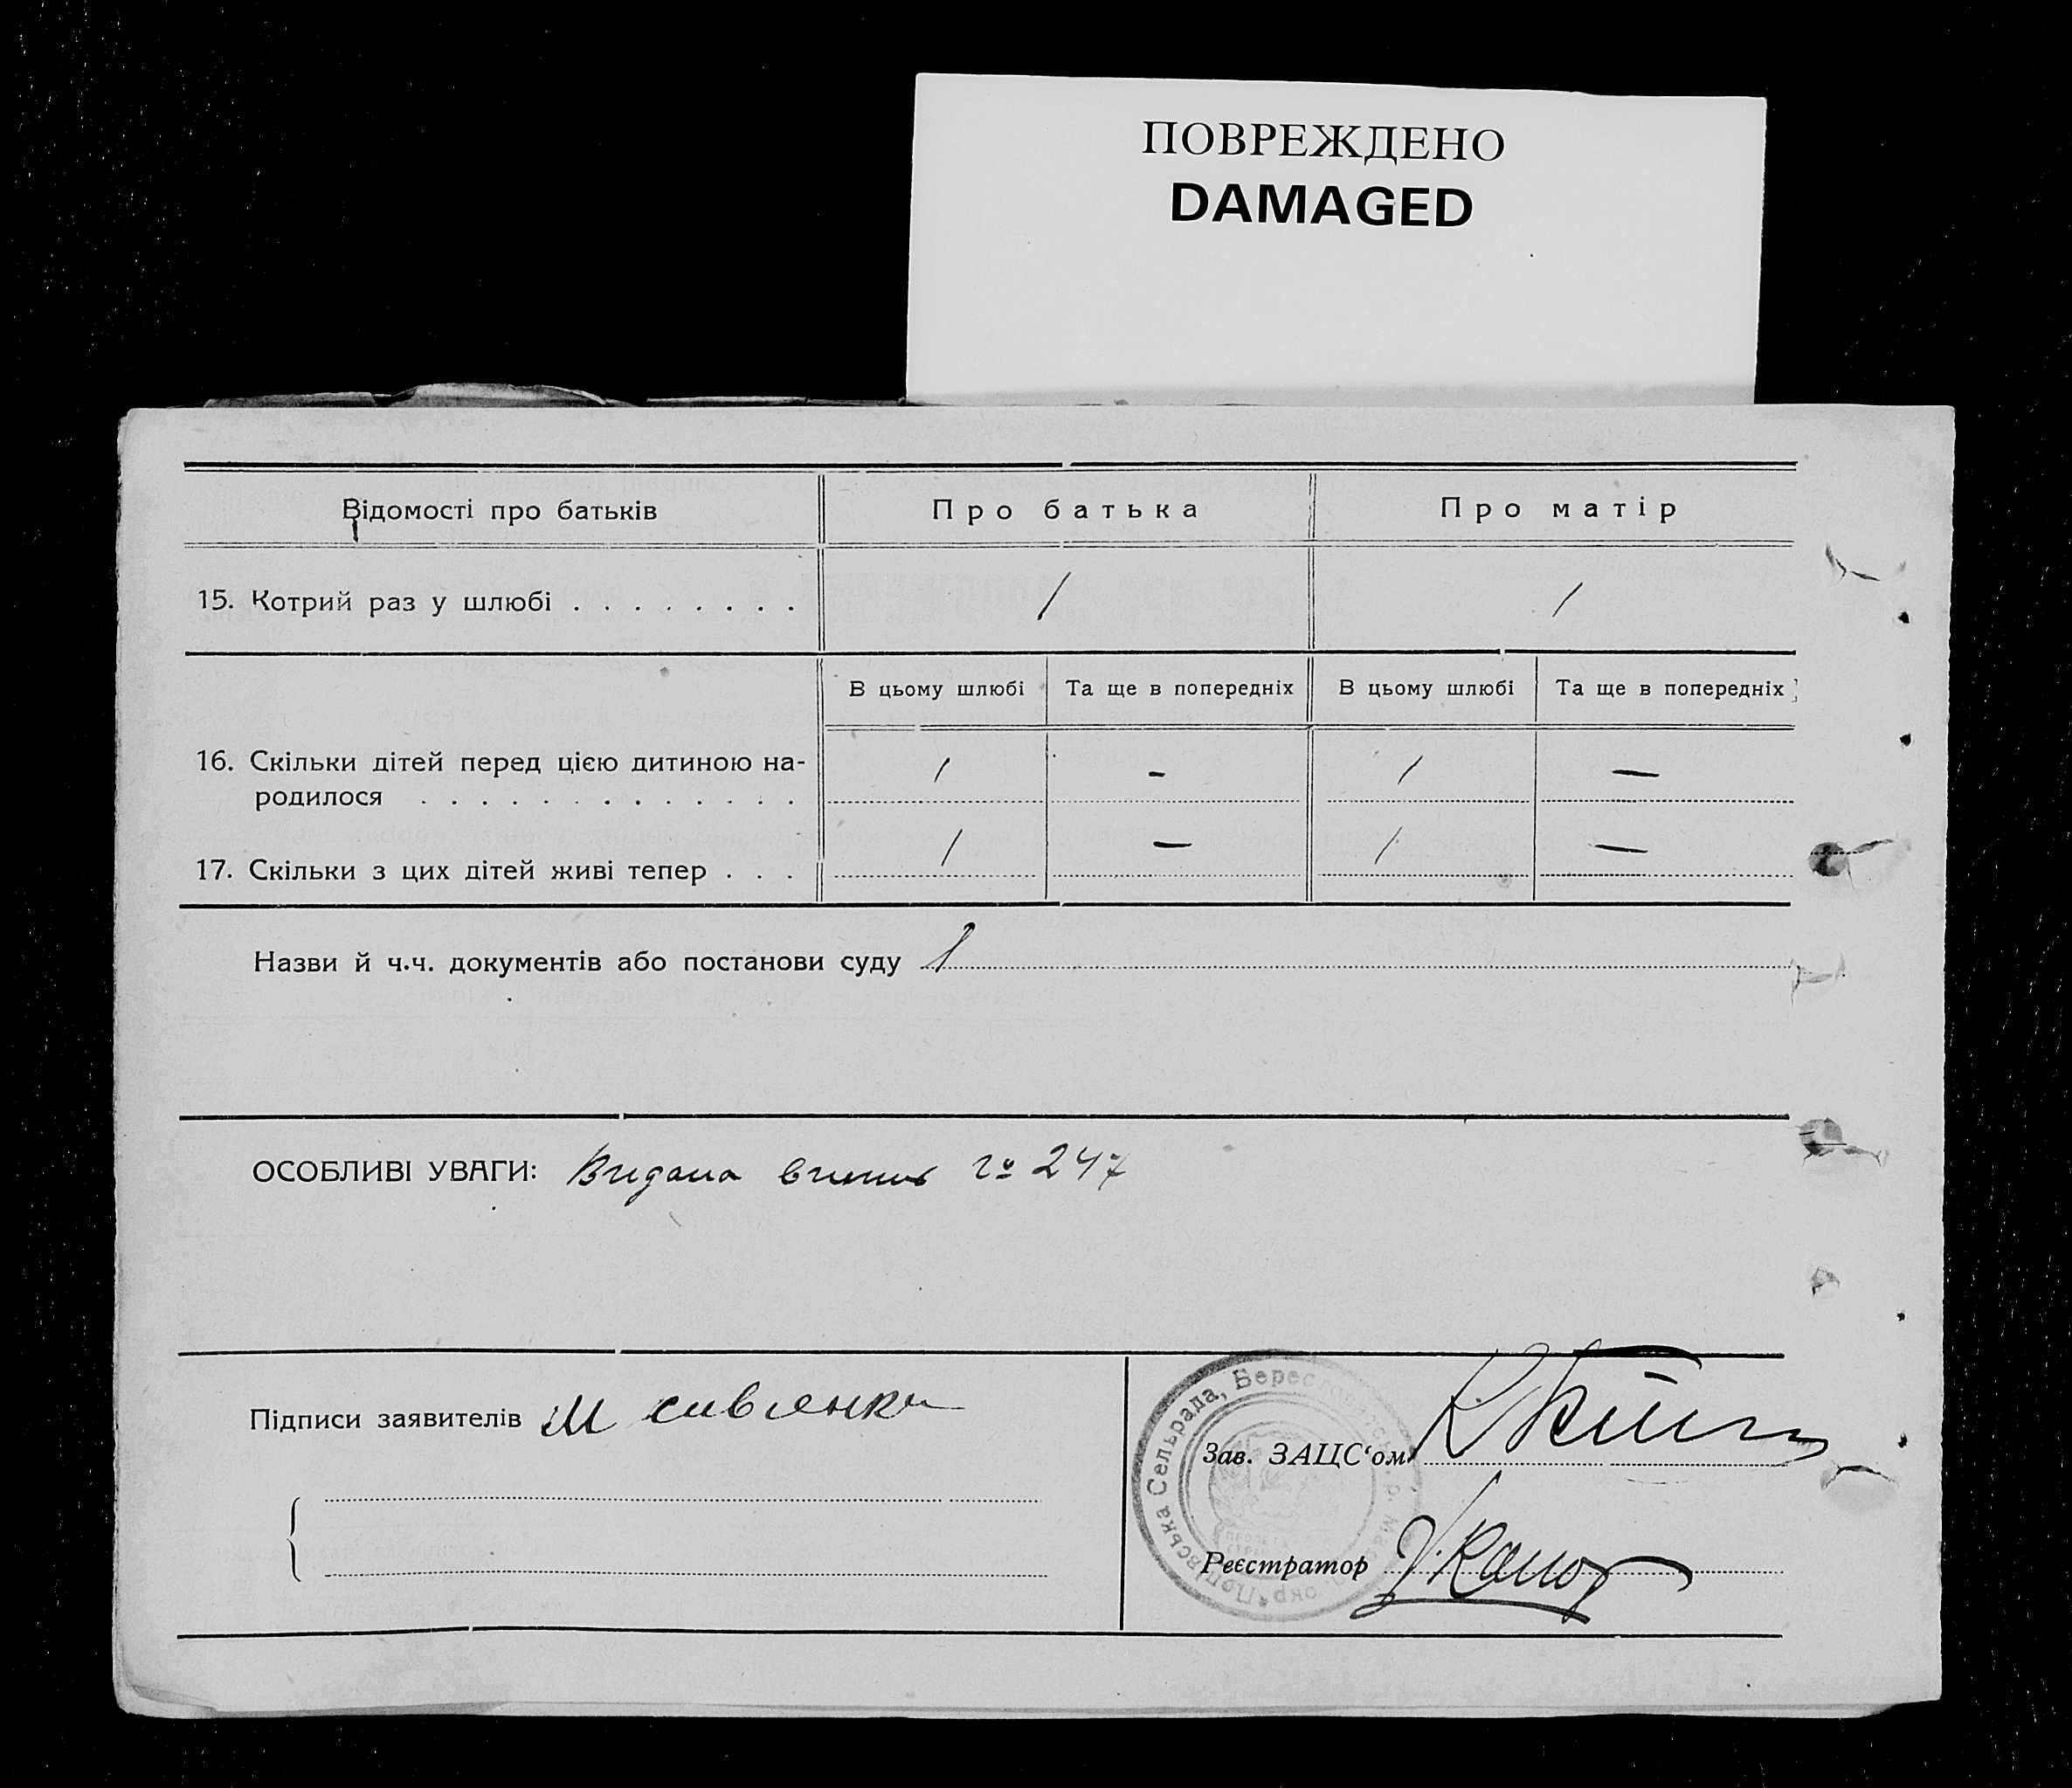 ПОВРЕЖДЕНО
DAMAGED
Відомості про батьків
Про батька
Про матір
15. Котрий раз у шлюбі . . . . . . . .
1
1
В цьому шлюбі
Та ще в попередніх
В цьому шлюбі
Та ще в попередніх
16. Скільки дітей перед цією дитиною на-
родилося . . . . . . . . . . . . .
1
-
1
—
17. Скільки з цих дітей живі тепер . . .
1
—
1
—
Назви й ч.ч. документів або постанови суду
ОСОБЛИВІ УВАГИ: Видана № 247
Підписи заявителів М
Зав. ЗАЦС'ом
Реєстратор
Попівська Сельрада, Берестовецьк р. окр.